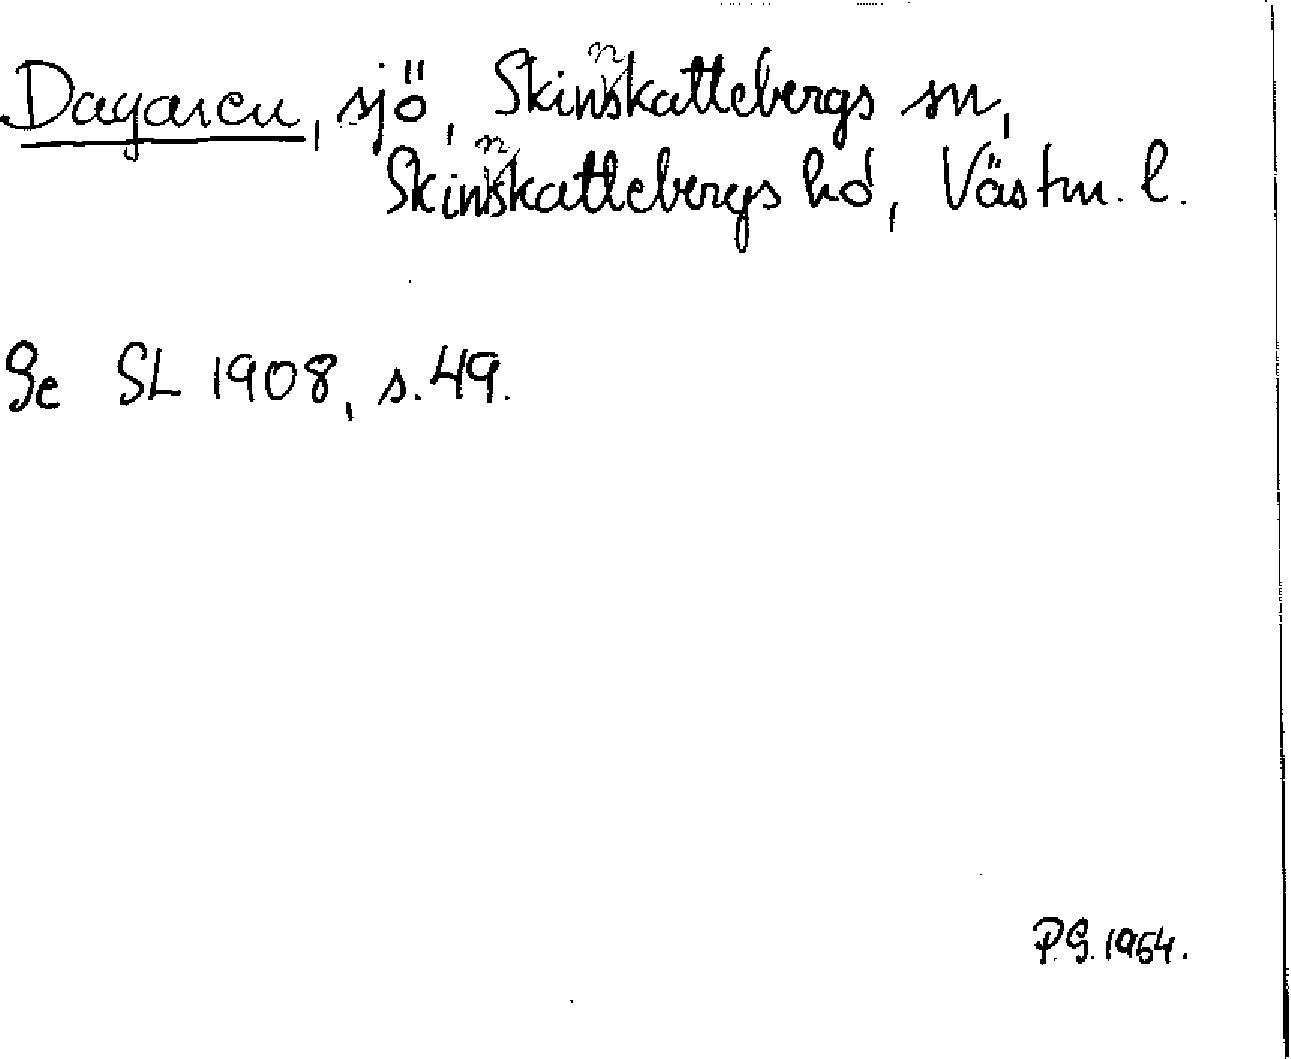 Dagaren, sjö, Skinnskattebergs sn,
Skinnskattebergs hd, Västm. l.
Se SL 1908, s. 49.
P.G. 1964.